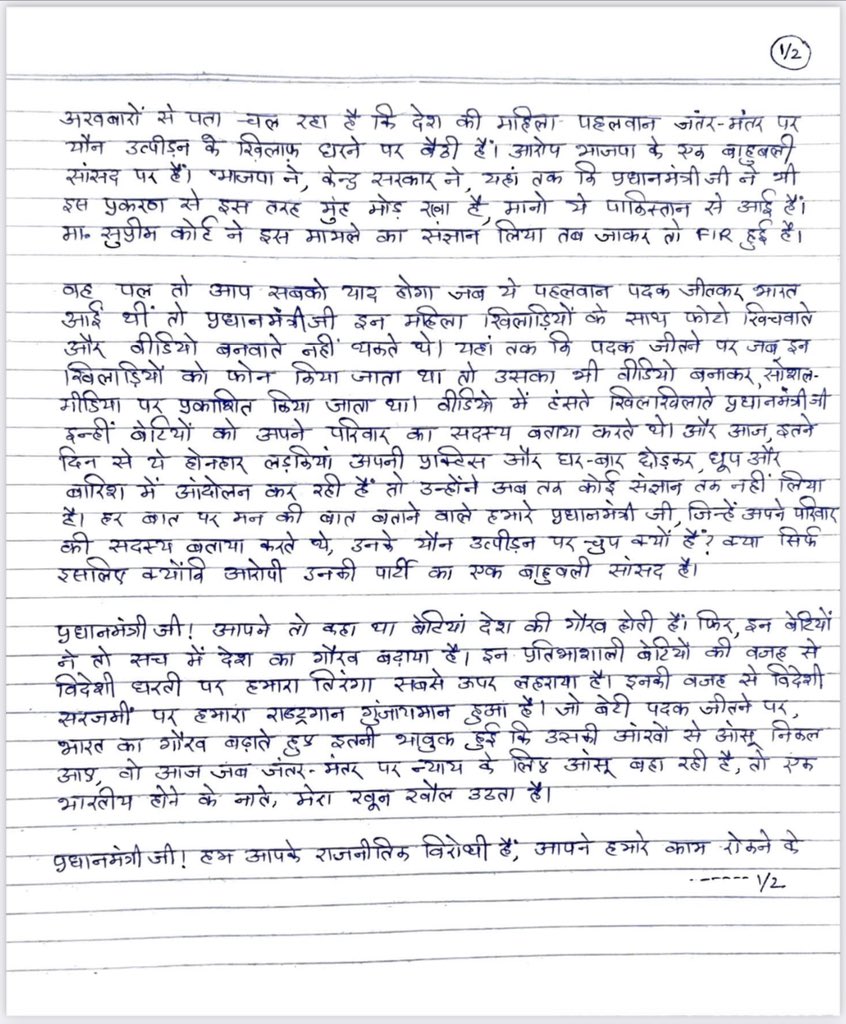 1/2
अखबारों से पता चल रहा है कि देश की महिला पहलवान जंतर-मंतर पर
यौन उत्पीड़न के खिलाफ धरने पर बैठी हैं। आरोप भाजपा के एक बाहुबली
सांसद पर हैं। भाजपा ने, केन्द्र सरकार ने, यहां तक कि प्रधानमंत्री जी ने भी
इस प्रकरण से इस तरह मुंह मोड़ रखा है, मानो ये पाकिस्तान से आई हैं।
मा० सुप्रीम कोर्ट ने इस मामले का संज्ञान लिया तब जाकर तो FIR हुई है।
वह पल तो आप सबको याद होगा जब ये पहलवान पदक जीतकर भारत
आई थीं तो प्रधानमंत्रीजी इन महिला खिलाड़ियों के साथ फोटो खिचवाते
और वीडियो बनवाते नहीं थकते थे। यहां तक कि पदक जीतने पर जब इन
खिलाड़ियों को फोन किया जाता था तो उसका भी वीडियो बनाकर, सोशल-
मीडिया पर प्रकाशित किया जाता था। वीडियो में हंसते खिलखिलाते प्रधानमंत्रीजी
इन्हीं बेटियों को अपने परिवार का सदस्य बताया करते थे। और आज, इतने
दिन से ये होनहार लड़कियां अपनी प्रैक्टिस और घर-बार छोड़कर, धूप और
बारिश में आंदोलन कर रही हैं तो उन्होंने अब तक कोई संज्ञान तक नहीं लिया
है। हर बात पर मन की बात बताने वाले हमारे प्रधानमंत्री जी, जिन्हें अपने परिवार
की सदस्य बताया करते थे, उनके यौन उत्पीड़न पर चुप क्यों हैं? क्या सिर्फ
इसलिए क्योंकि आरोपी उनकी पार्टी का एक बाहुबली सांसद है।
प्रधानमंत्री जी! आपने तो कहा था बेटियां देश की गौरव होती हैं। फिर, इन बेटियों
ने तो सच में देश का गौरव बढ़ाया है। इन प्रतिभाशाली बेटियों की वजह से
विदेशी धरती पर हमारा तिरंगा सबसे ऊपर लहराया है। इनकी वजह से विदेशी
सरजमीं पर हमारा राष्ट्रगान गुंजायमान हुआ है। जो बेटी पदक जीतने पर,
भारत का गौरव बढ़ाते हुए इतनी भावुक हुई कि उसकी आंखों से आंसू निकल
आए, वो आज जब जंतर-मंतर पर न्याय के लिए आंसू बहा रही है, तो एक
भारतीय होने के नाते, मेरा खून खौल उठता है।
प्रधानमंत्री जी! हम आपके राजनीतिक विरोधी हैं, आपने हमारे काम रोकने के
------ 1/2